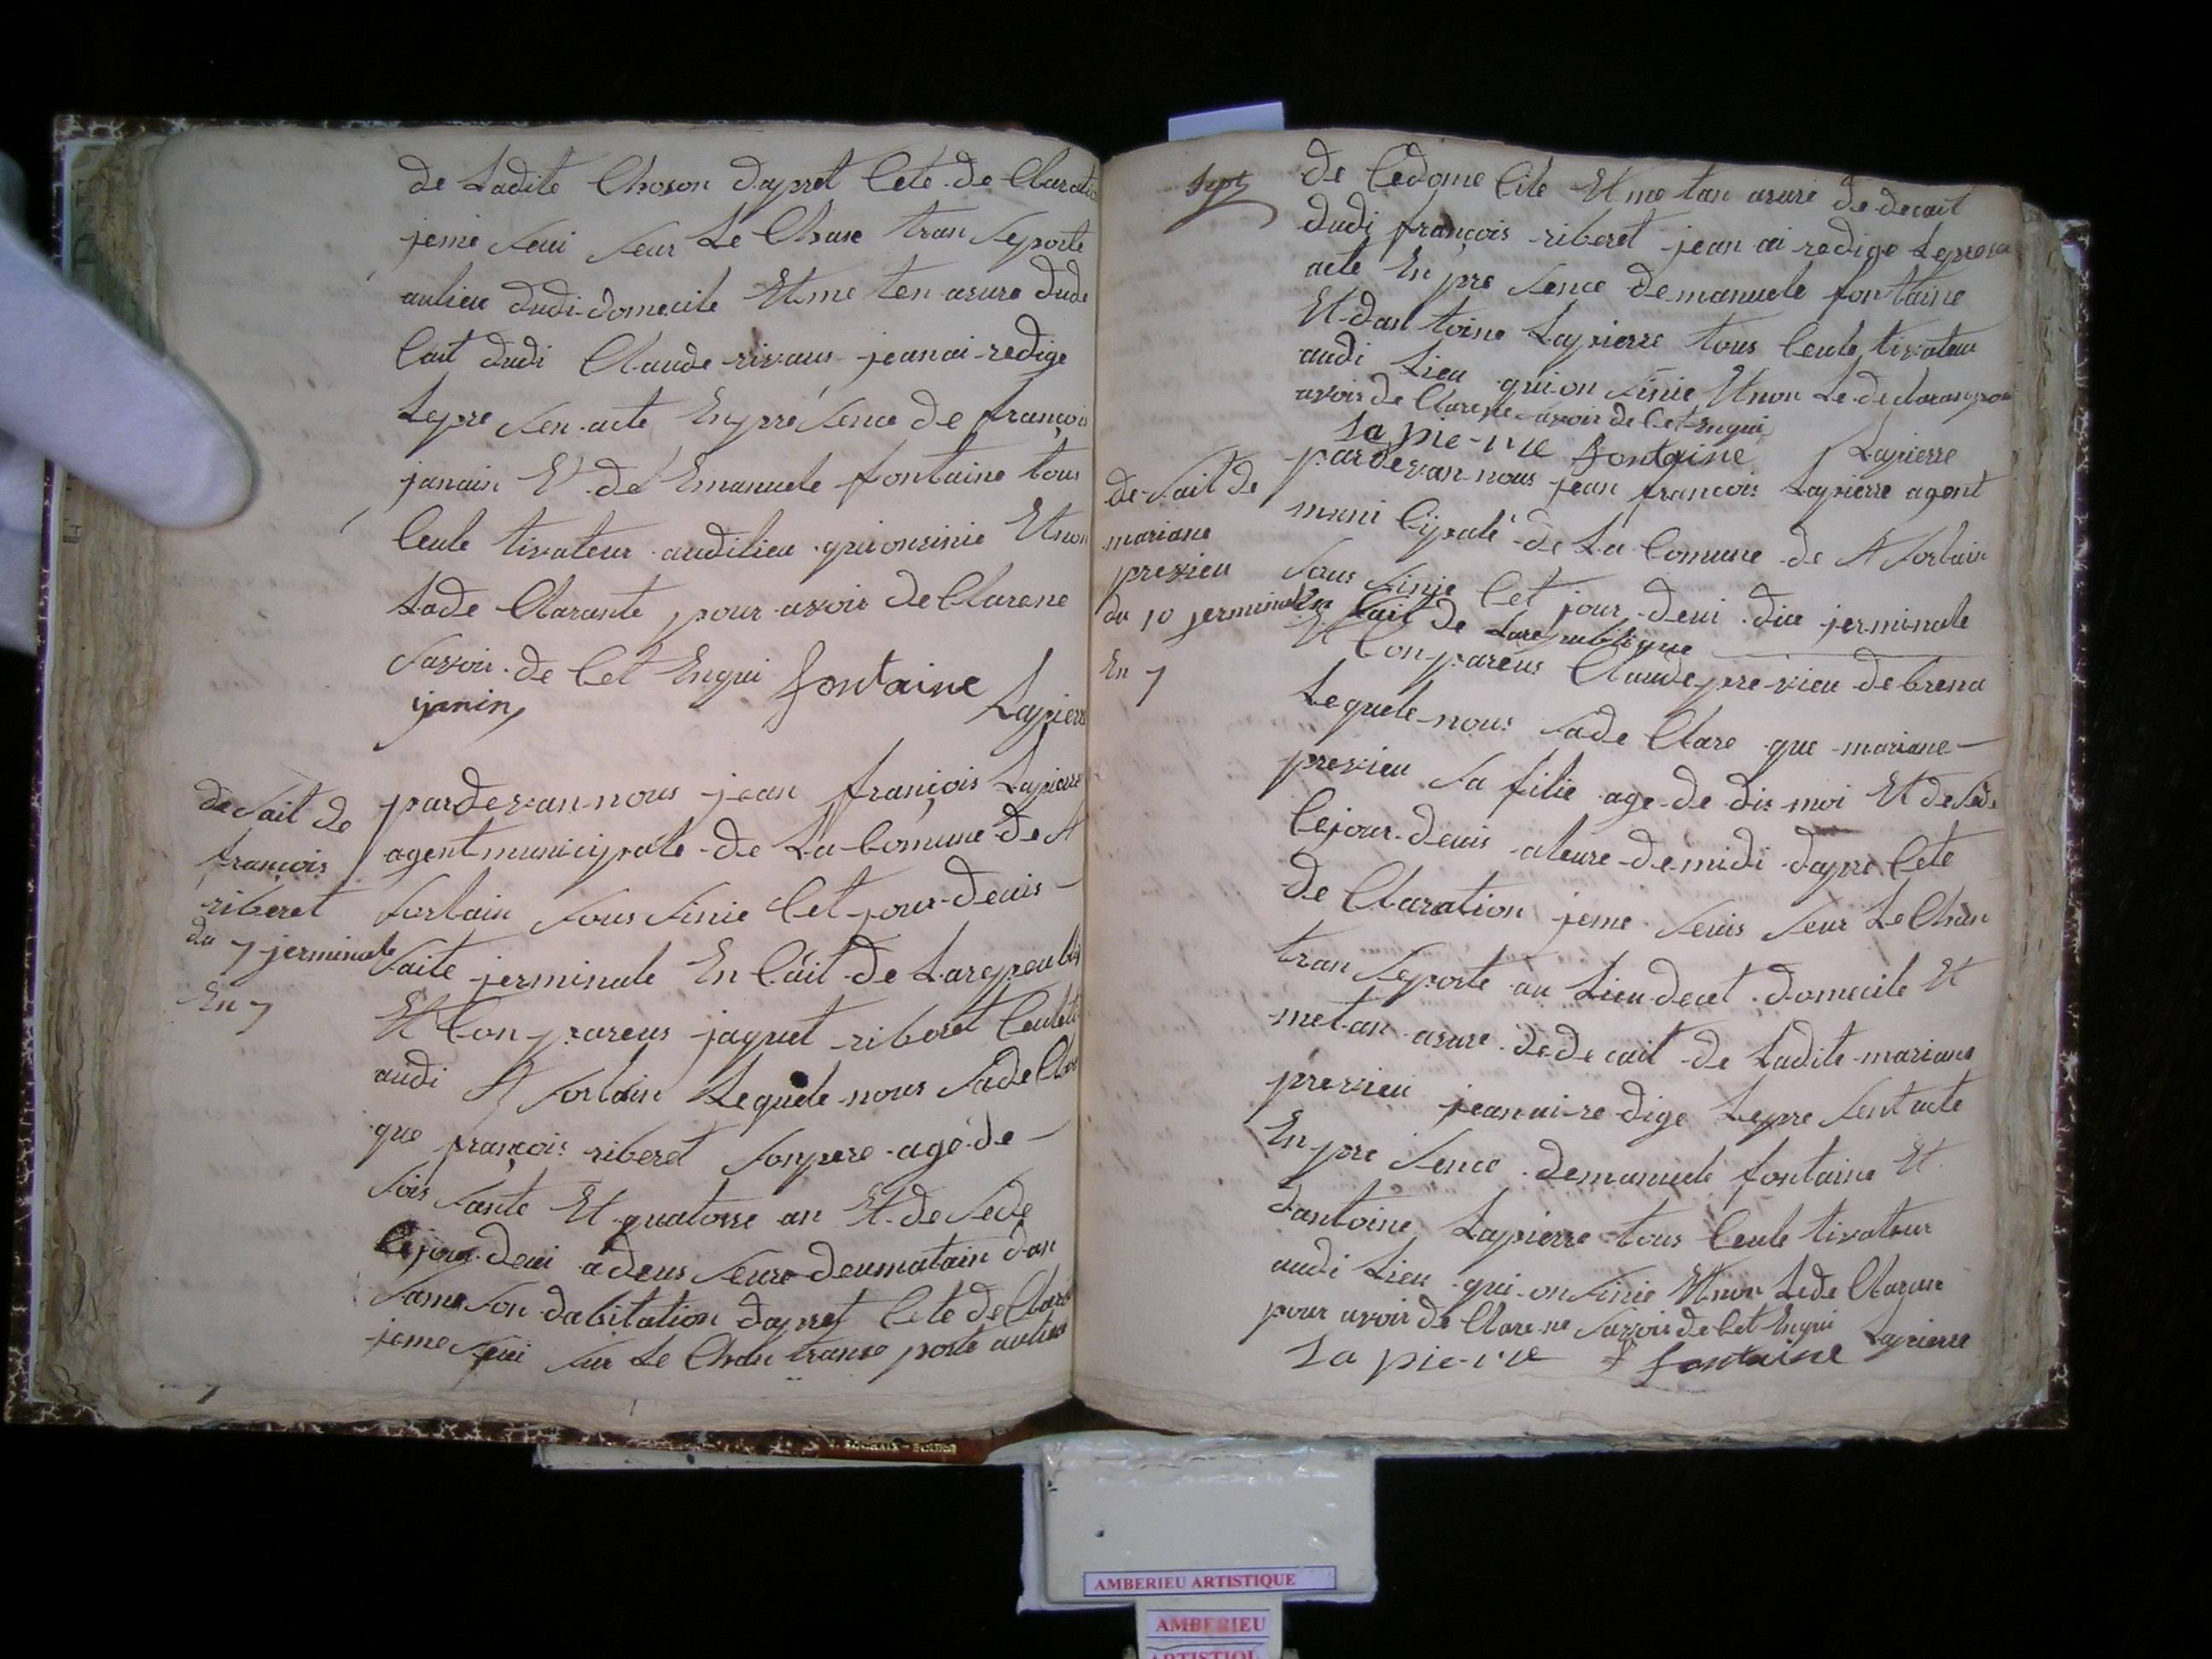 de Ladite Choson dapret Cete de Claratio
jeme Seui Seur Le Chane tran Seporte
aulieu dudi domecile Et me ten asure dude
Cait dudi Claude rivaus jeanai redige
Lepre Sen acte En pré Sence de françois
janain Et de Emanuele fontaine tous
Ceule tivateur audilieu qui onsinie Et non
Lade Clarante pour avoir de Clarene
Savoir de Cet Enqui fontaine
janin Lapierre
de Sait de
françois
riberet
du 7 jerminale
En 7
pardevan nous jean françois Lapierre
agent municipale de La Comune de St
Sorlain Sous Sinie Cet jour deuis
Saite jerminale En Cait de Larepeubli
Et Conpareus jaquet riberet Ceulet
audi St Sorlain Lequele nous Sade Clar
que françois riberet Sonpere age de
Sois Sante Et quatorse an Et de Sede
Cejour deui a deus Seure deumatain dan
Same Son dabitation dapret Cete de Clara
jeme Seui Sur Le Chan transe porte aulieu
Sept
de Cedome Cile Et me tan asure de decait
dudi françois riberet jean ai redige Lepresen
acte En pre Sence demanuele fontaine
Et dan toine Lapierre tous Ceule tivateur
audi Lieu qui on Sinie Et non Le de claran pour
avoir de Clare ne Savoir de Cet Enqui
La pie-rre fontaine Lapierre
de Sait de
mariane
previeu
du 10 jerminale
En 7
pardevan nous jean françois Lapierre agent
muni Cipale de La Comune de St Sorlain
Sous Sinie Cet jour deui dice jerminale
En Cait de Larepublique
Et Conpareus Claude pre vieu de brena
Lequele nous Sade Clare que mariane
previeu Sa filie age de dis moi Et de Sede
Cejour deuis aleure de midi dapre Cete
de Claration jeme Seuis Seur Le Chan
tran Seporte au Lieu decet domecile Et
metan asure de de cait de Ladite mariane
previeu jean ai re dige Lepre Sent acte
En pre Sence demanuele fontaine Et
dantoine Lapierre tous Ceule tivateur
audi Lieu qui on Sinie Et non Lede Claran
pour avoir de Clare ne Savoir de Cet Enqui
La pie-rre fontaine Lapierre
AMBERIEU ARTISTIQUE
AMBERIEU
ARTISTIQUE